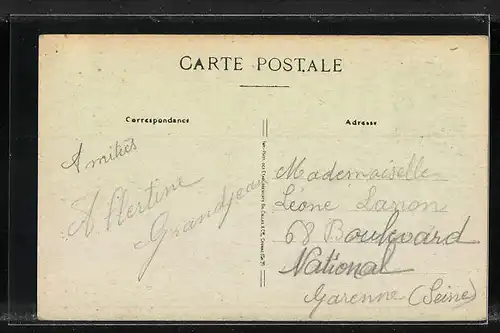 CARTE POSTALE
Correspondance
Adresse
Amitiés
Grandjean
Mademoiselle
Léone Lanon
68 Boulevard
National
Garenne (Seine)